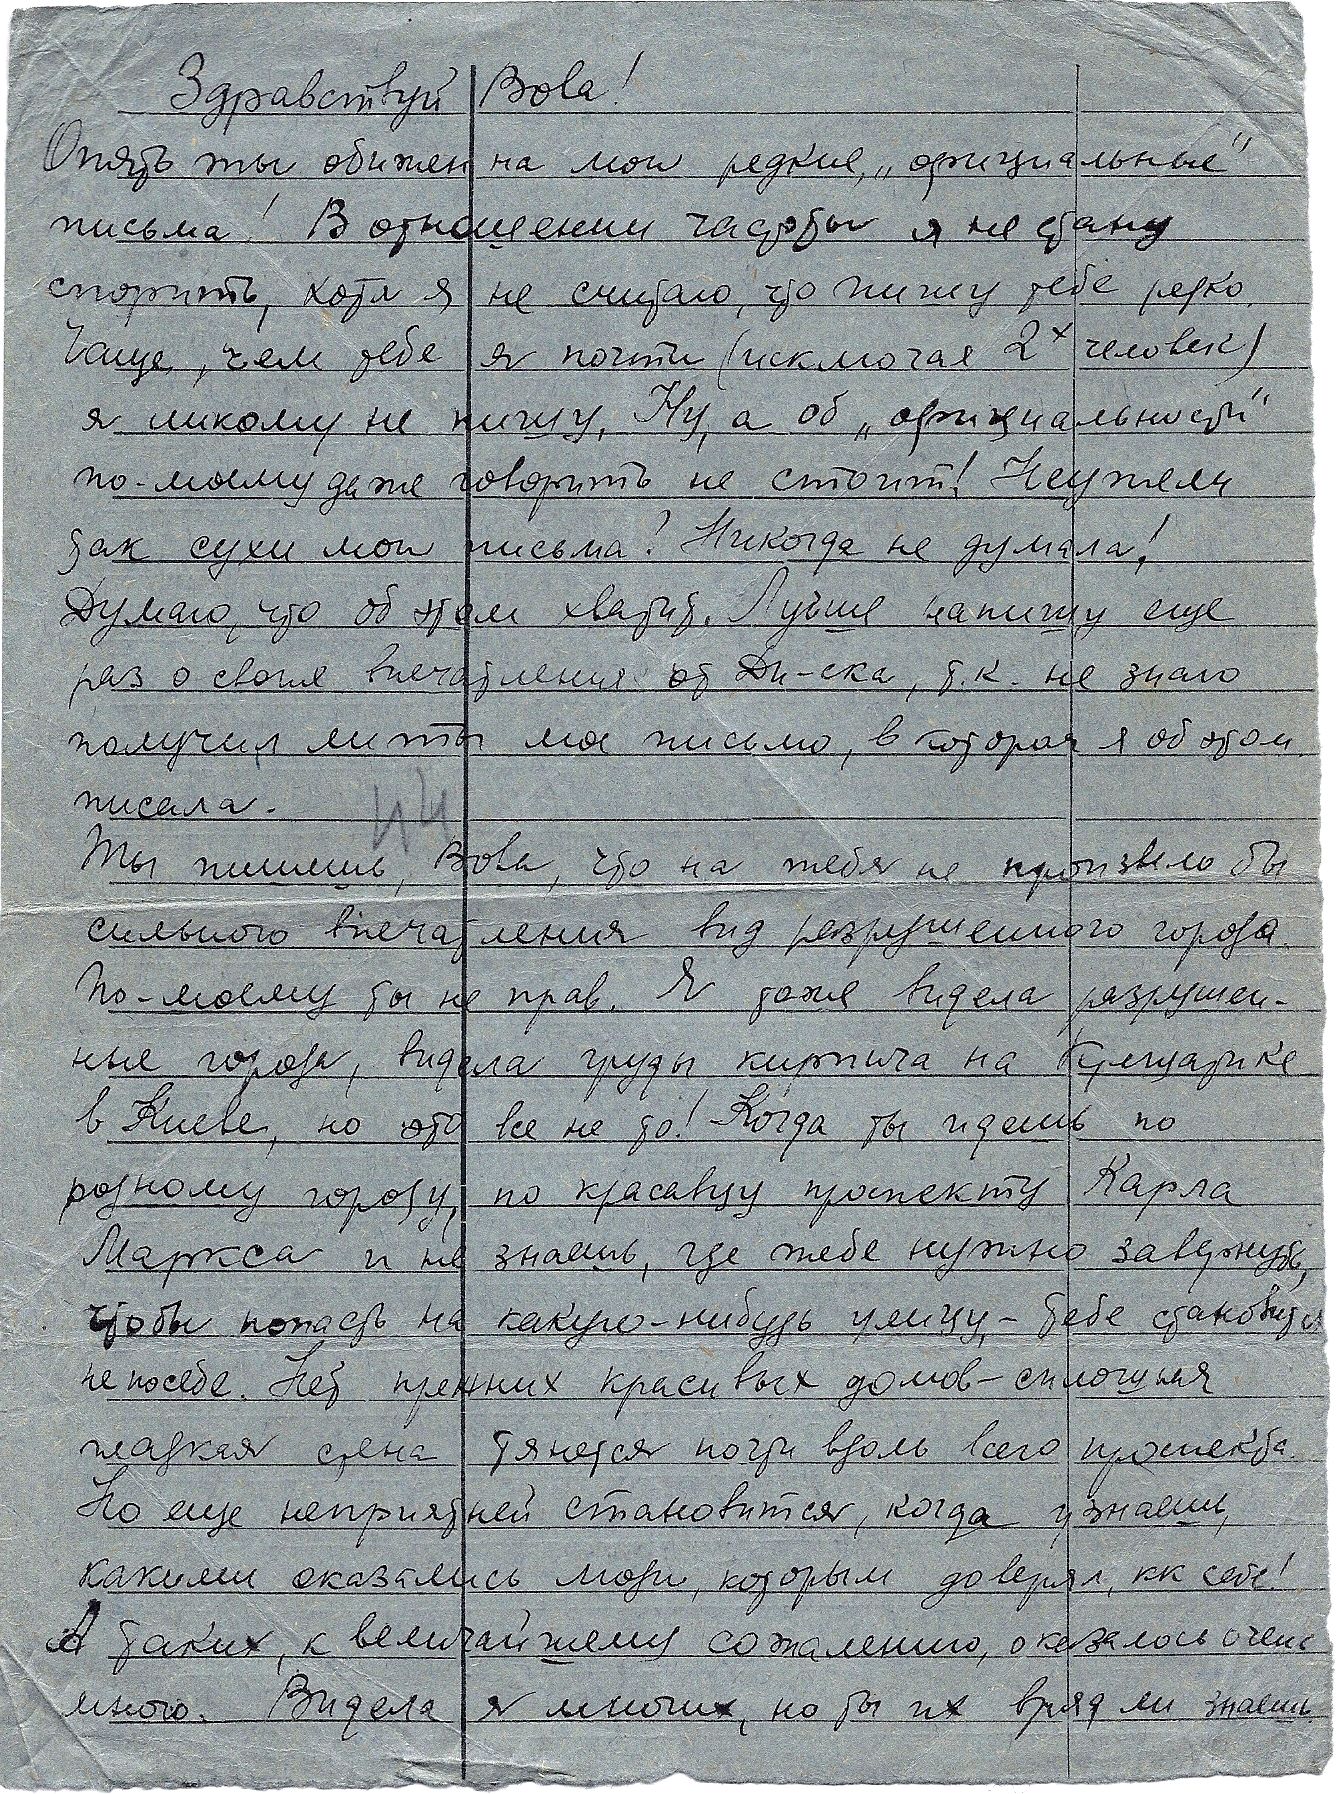 Здравствуй Вова!
Опять ты обижен на мои редкие, „официальные"
письма! В отношении частоты я не стану
спорить, хотя я не считаю, что пишу тебе редко.
Чаще, чем тебе я почти (исключая 2х человек)
я никому не пишу. Ну, а об „официальности"
по-моему даже говорить не стоит! Неужели
так сухи мои письма? Никогда не думала!
Думаю, что об этом хватит. Лучше напишу еще
раз о своие впечатления от Дн-ска, т.к. не знаю
получил ли ты мое письмо, в котором я об этом
писала.
Ты пишешь, Вова, что на тебя не произвело бы
сильного впечатления вид разрушенного города.
По-моему ты не прав. Я тоже видела разрушен-
ные города, видела груды кирпича на Крещатике
в Киеве, но это все не то! Когда ты идешь по
родному городу, по красавцу проспекту Карла
Маркса и не знаешь, где тебе нужно завернуть,
чтобы попасть на какую-нибудь улицу, – тебе становится
не посебе. Нет прежних красивых домов – сплошная
гладкая стена тянется почти вдоль всего проспекта.
Но еще неприятней становится, когда узнаешь,
какими оказались люди, которым доверял, кк себе!
А таких, к величайшему сожалению, оказалось очень
много. Видела я многих, но ты их вряд ли знаешь.